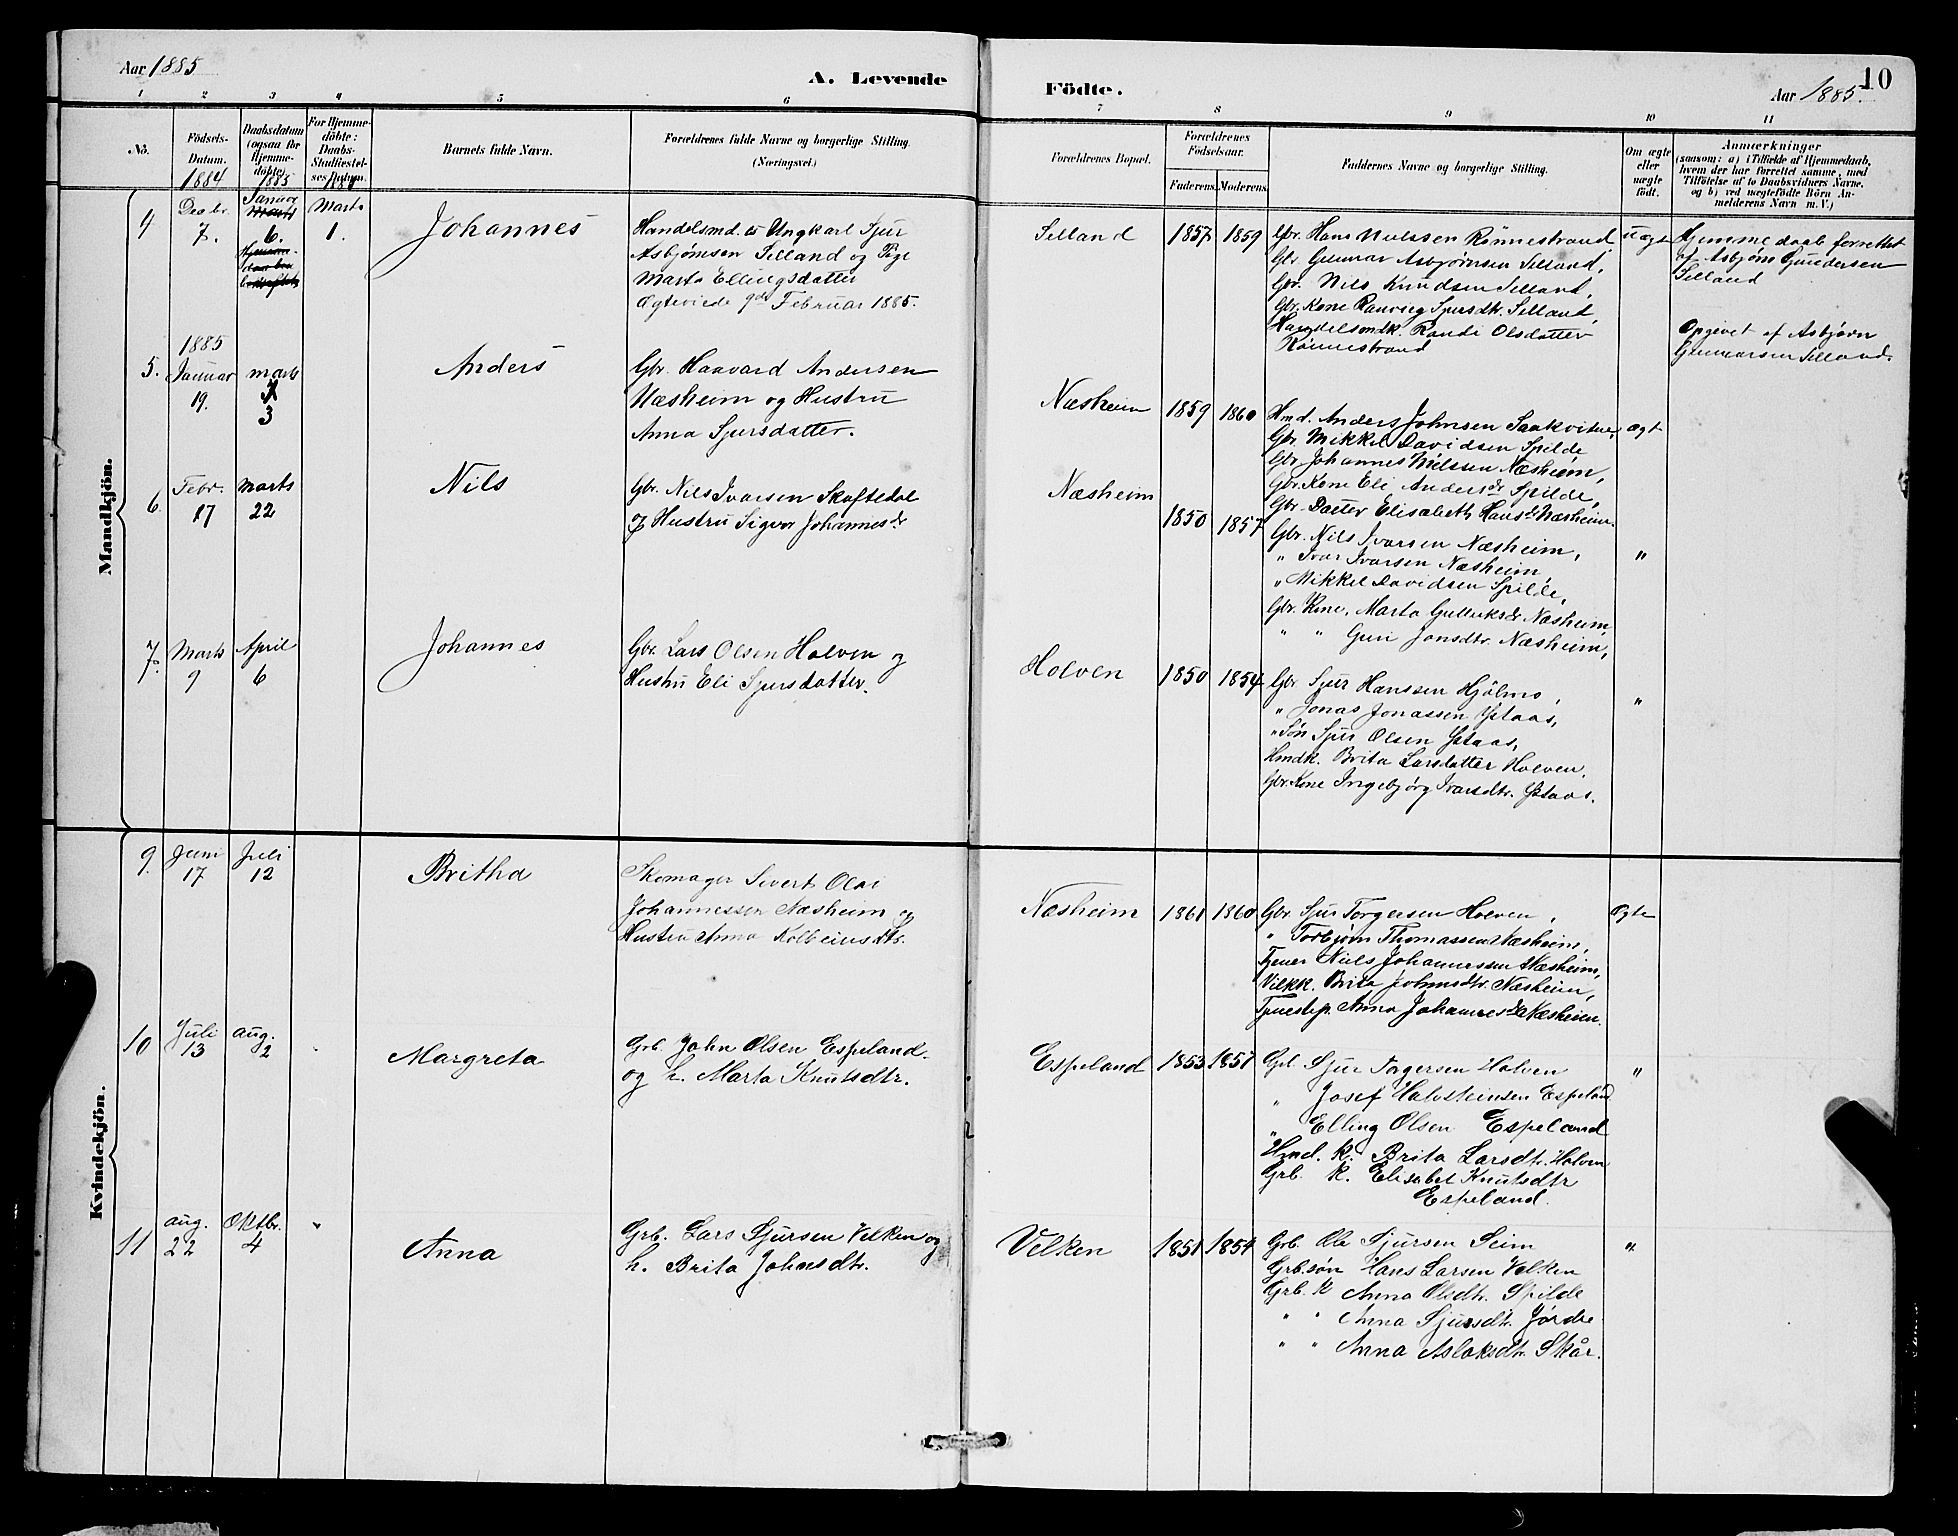 Aar 1885
A. Levende
Födte.
Aar 1885.
10
1 2 3 4 5 6 7 8 9 10 11
No.
Födsels-
Datum.
1884
Daabsdatum
(ogsaa for
Hjemme-
döbte)
1885
For Hjemme-
döbte:
Daabs-
Stadfæstel-
ses Datum.
Barnets fulde Navn.
Forældrenes fulde Navne og borgerlige Stilling.
(Næringsvei.)
Forældrenes Bopæl.
Forældrenes
Födselsaar.
Faderens. Moderens.
Faddernes Navne og borgerlige Stilling.
Om ægte
eller
uægte
födt.
Anmærkninger
(saasom: a) i Tilfælde af Hjemmedaab,
hvem der har forrettet samme, med
Tilföielse af to Daabsvidners Navne,
og b) ved uægtefödte Börn An-
melderens Navn m. V.)
Mandkjön.
4
Decbr.
7.
Januar
Marts
6.
Marts
1.
Johannes
Handelsmd. Ungkarl Sjur
Asbjørnsen Selland og Pige
Marta Ellingsdatter
Ægteviede 9de Februar 1885.
Selland
1857 1859
Gbr. Hans Nielssen Rønnestrand
Gbr. Gunnar Asbjørnsen Selland,
Gbr. Nils Knudsen Selland,
Gbr. Kone Ranveig Sjursdtr. Selland,
Handelsmdk. Randi Olsdatter
Rønnestrand
uægt
Hjemmedaab forrettet
af Asbjørn Gundersen
Selland
Opgivet af Asbjørn
Gunnarsen Selland.
5.
1885
Januar
19.
marts
3
Anders
Gbr. Haavard Andersen
Næsheim og Hustru
Anna Sjursdatter.
Næsheim
1859 1860
Hmd. Anders Johnsen Saakvitne,
Gbr. Mikkel Davidsen Spilde
Gbr. Johannes Nielssen Næsheim,
Gbr. Kone Eli Andersdr. Spilde,
Gbr. Datter Elisabeth Hansdr. Næsheim.
ægt
6.
Febr.
17
Marts
22
Nils
Gbr. Nils Ivarsen Skaftedal
og Hustru Sigvor Johannesdr
Næsheim
1850 1857
Gbr. Nils Ivarsen Næsheim,
" Ivar Ivarsen Næsheim
" Mikkel Davidsen Spilde,
Gbr. Kone, Marta Gulleiksdr Næsheim,
" " Guri Jonsdtr. Næsheim,
"
7.
Marts
9
April
6
Johannes
Gbr. Lars Olsen Holven og
Hustru Eli Sjursdatter.
Holven
1850 1854
Gbr Sjur Hanssen Hjølmo,
" Jonas Jonassen Ystaas,
" Søn Sjur Olsen Ystaas,
Hmdk. Brita Larsdatter Holven,
Gbr. Kone Ingebjørg Ivarsdtr. Ystaas.
"
Kvindekjön.
9.
Juni
17
Juli
12
Britha
Skomager Sivert Olai
Johannessen Næsheim og
Hustru Anna Kolbeinsdtr.
Næsheim
1861 1860
Gbr Sjur Torgersen Holven,
" Torbjørn Thomassen Næsheim,
Tjener Niels Johannessen Næsheim,
Brita Johnsdtr. Næsheim,
Tjenestep. Anna Johannesdr Næsheim.
Ægte
10
Juli
13
aug.
2
Margreta
Grb. John Olsen Espeland
og h. Marta Knutsdtr.
Espeland
1853 1851
Sjur Torgersen Holven
" Josef Halvsteinsen Espeland
" Elling Olsen Espeland
Hmd. K. Brita Larsdtr. Holven
Grb. K. Elisabet Knutsdtr
Espeland.
"
11
aug.
22
Oktbr.
4
"
Anna
Grb. Lars Sjursen Velken og
h. Brita Johnsdtr.
Velken
1851 1854
Grb. Ole Sjursen Seim
Grb.søn Hans Larsen Velken
Grb. K Anna Olsdtr. Spilde
" " Anna Sjursdtr. Jørdre
" " Anna Aslaksdtr. Skår.
"